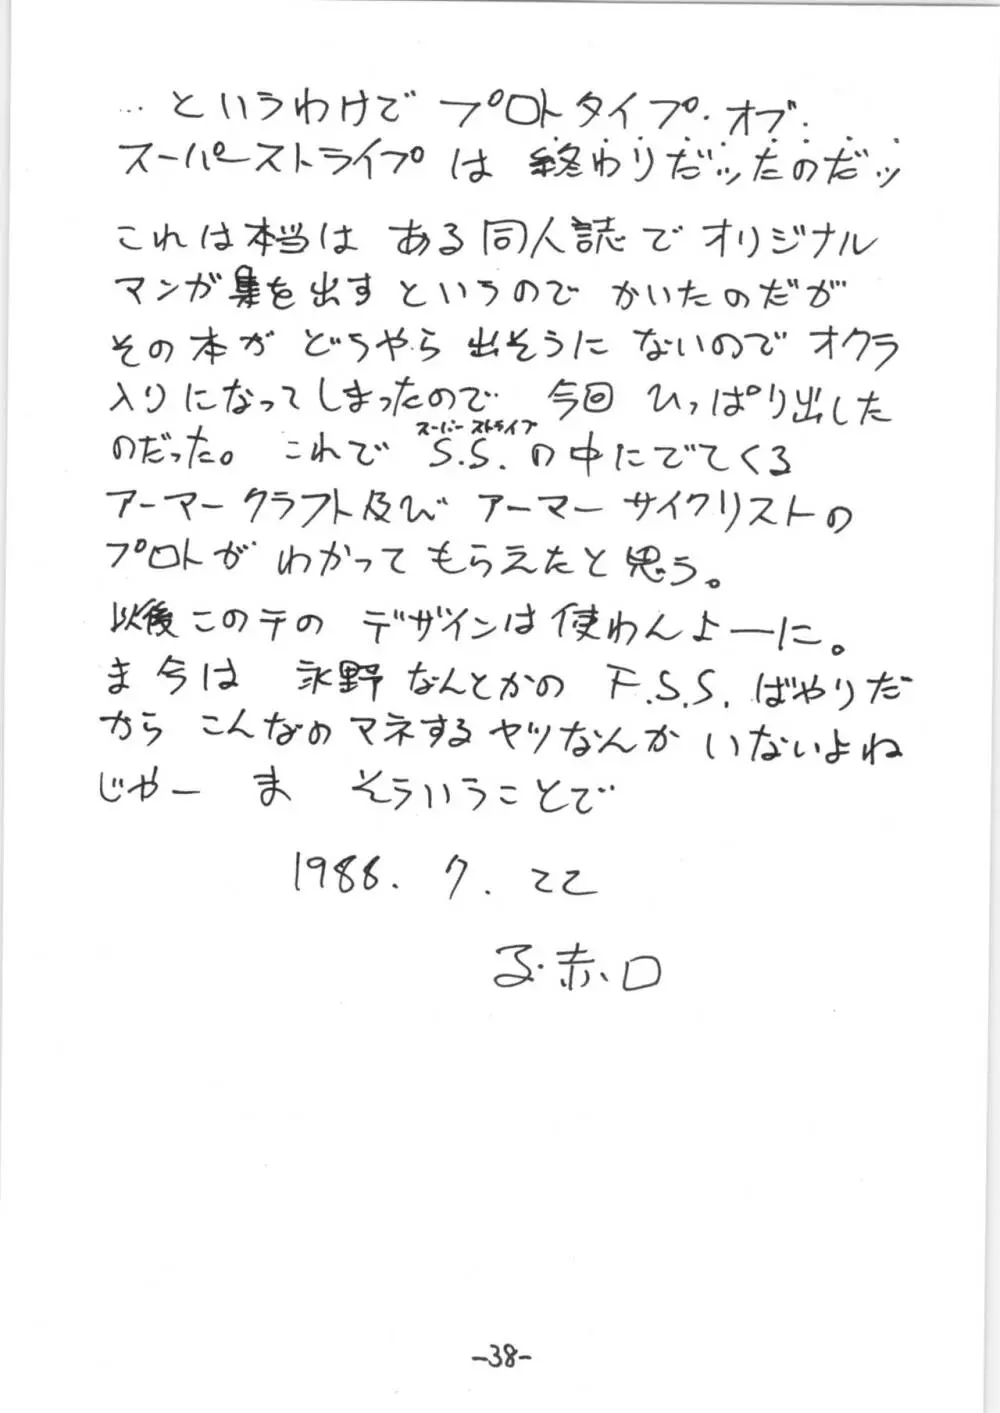 …というわけでプロトタイプ・オブ・
スーパーストライプは 終わりだッたのだッ
これは本当は ある同人誌でオリジナル
マンガ集を出すというので かいたのだが
その本が どうやら出そうにないのでオクラ
入りになってしまったので 今回ひっぱり出した
スーパーストライプ
のだった。これで S.S.の中にでてくる
アーマークラフト及び アーマーサイクリストの
プロトが わかってもらえたと思う。
以後このテの デザインは使わんよーに。
ま今は 永野なんとかの F.S.S.ばやりだ
から こんなのマネするヤツなんか いないよね
じゃー ま そういうことで
1988. 7. 22
る・赤、ロ
-38-